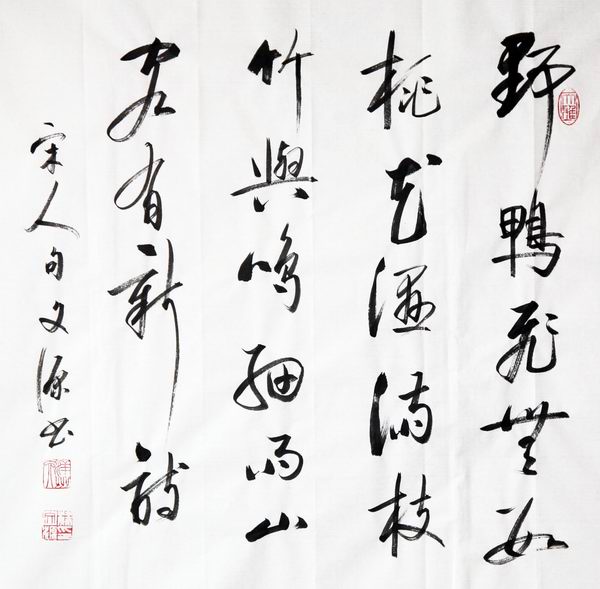 野鴨飛無數
桃花濕滿枝
竹與鳴細雨山
客有新詩
宋人句文源书